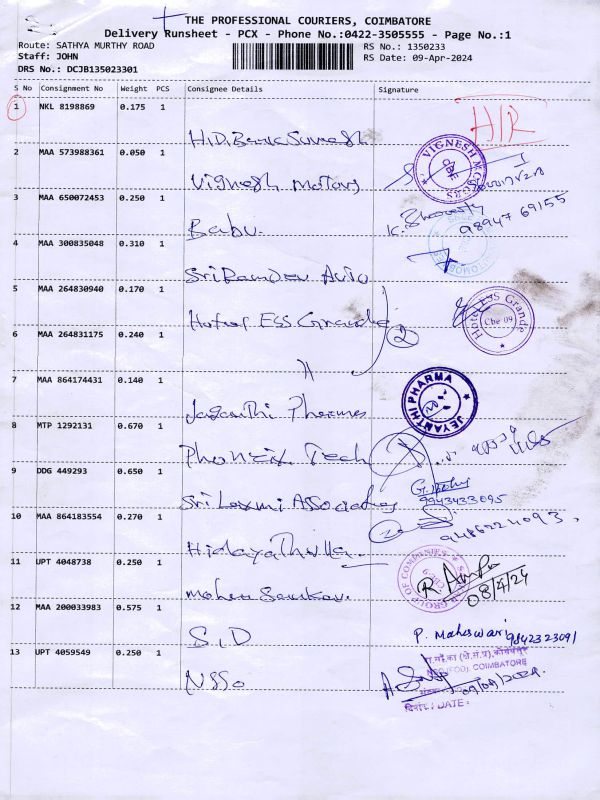 THE PROFESSIONAL COURIERS, COIMBATORE
Delivery Runsheet - PCX - Phone No.:0422-3505555 - Page No.:1
Route: SATHYA MURTHY ROAD RS No.: 1350233
Staff: JOHN RS Date: 09-Apr-2024
DRS No.: DCJB135023301
S No Consignment No Weight PCS Consignee Details Signature
1 NKL 8198869 0.175 1
H/R
2 MAA 573988361 0.050 1
VIGNESH
Vignesh Motors
3 MAA 650072453 0.250 1
Babu. 98947 69155
4 MAA 300835048 0.310 1
Sri Ramdev Auto
5 MAA 264830940 0.170 1
Hotel ESS Grande
Hotel ESS Grande
Cbe 09
2
6 MAA 264831175 0.240 1
7 MAA 864174431 0.140 1
JEYANTHI PHARMA
8 MTP 1292131 0.670 1
Tech
9 DDG 449293 0.650 1
Sri Laxmi Associates 9943433095
10 MAA 864183554 0.270 1
Hidayathulla 9486224093
11 UPT 4048738 0.250 1
GROUP OF COMPANIES
Mohan Sankar. 08/4/24
12 MAA 200033983 0.575 1
S.I.D P. Maheswari 9842323091
13 UPT 4059549 0.250 1
COIMBATORE
NSSO
दिनांक / DATE: